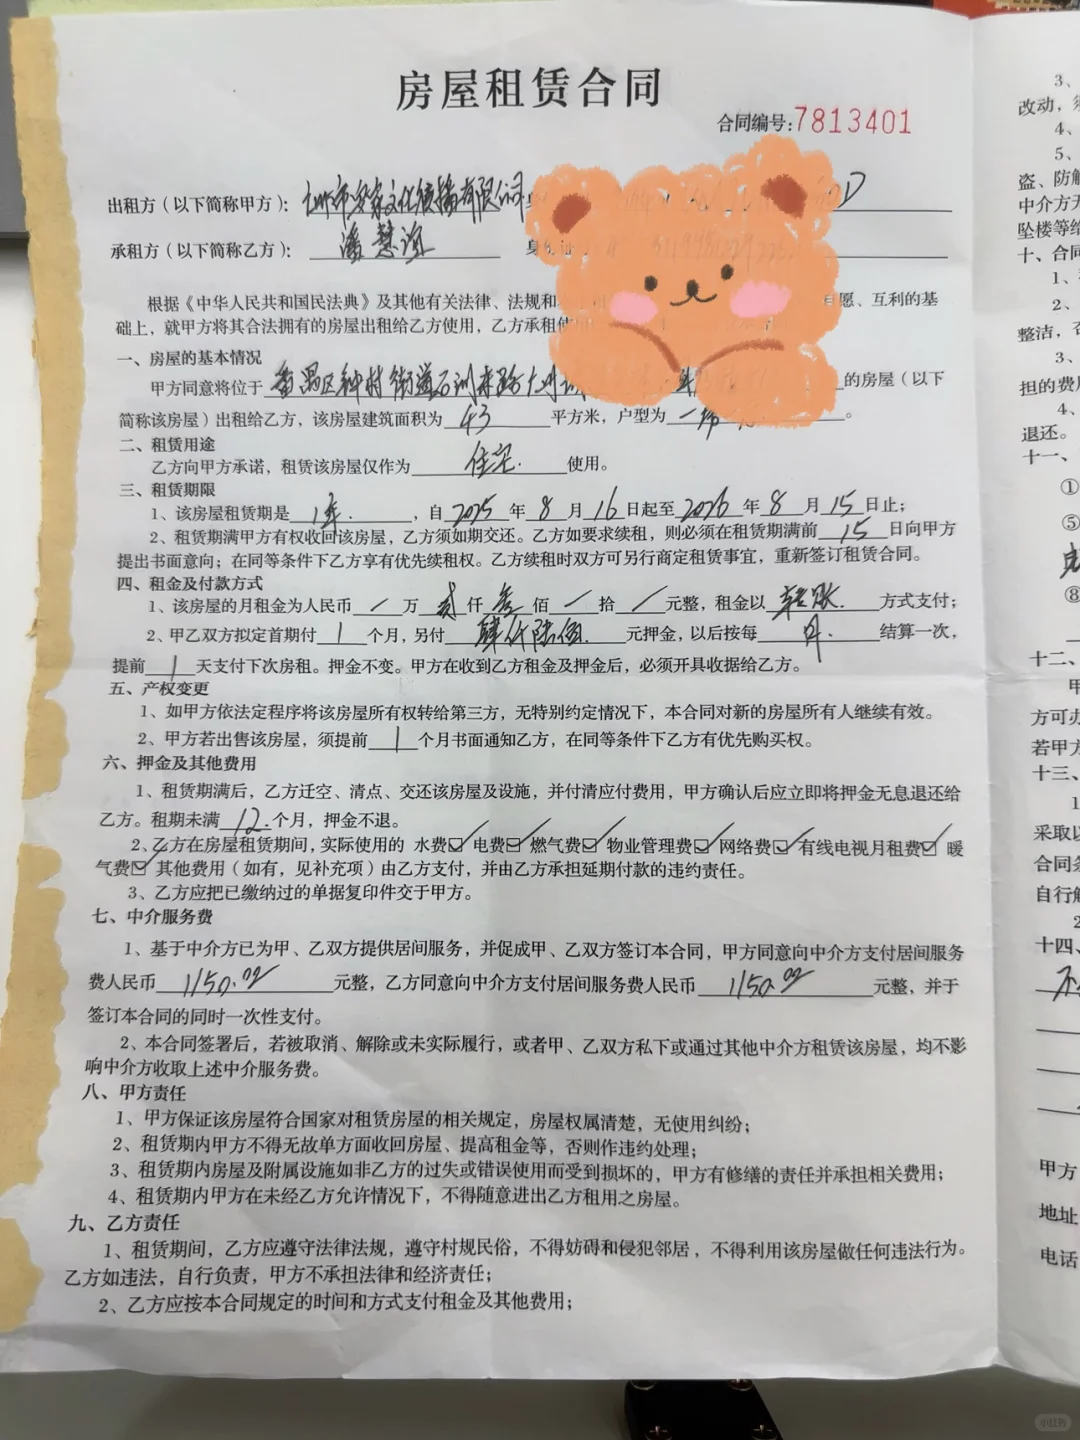 房屋租赁合同
合同编号:7813401
3、
改动,
4、
5、
出租方（以下简称甲方）： 文化传播有限公司
盗、防
中介方
坠楼等
承租方（以下简称乙方）： 潘慧
十、合同
1、
根据《中华人民共和国民法典》及其他有关法律、法规和 愿、互利的基
2、
础上，就甲方将其合法拥有的房屋出租给乙方使用，乙方承租
整洁，
一、房屋的基本情况
3、
甲方同意将位于 番禺区钟村街道 的房屋（以下
担的费
简称该房屋）出租给乙方，该房屋建筑面积为 43 平方米，户型为 一
4、
退还。
二、租赁用途
十一、
乙方向甲方承诺，租赁该房屋仅作为 住宅. 使用。
三、租赁期限
①
1、该房屋租赁期是 1年. ，自 2025 年 8 月 16 日起至 2026 年 8 月 15 日止；
⑤
2、租赁期满甲方有权收回该房屋，乙方须如期交还。乙方如要求续租，则必须在租赁期满前 15 日向甲方
提出书面意向；在同等条件下乙方享有优先续租权。乙方续租时双方可另行商定租赁事宜，重新签订租赁合同。
四、租金及付款方式
⑧
1、该房屋的月租金为人民币 / 万 贰 仟 叁 佰 / 拾 / 元整，租金以 转账. 方式支付；
2、甲乙双方拟定首期付 1 个月，另付 肆仟陆佰. 元押金，以后按每 月. 结算一次，
提前 1 天支付下次房租。押金不变。甲方在收到乙方租金及押金后，必须开具收据给乙方。
十二、
五、产权变更
1、如甲方依法定程序将该房屋所有权转给第三方，无特别约定情况下，本合同对新的房屋所有人继续有效。
方可办
2、甲方若出售该房屋，须提前 1 个月书面通知乙方，在同等条件下乙方有优先购买权。
若甲方
六、押金及其他费用
十三、
1、租赁期满后，乙方迁空、清点、交还该房屋及设施，并付清应付费用，甲方确认后应立即将押金无息退还给
乙方。租期未满 12. 个月，押金不退。
采取以
2、乙方在房屋租赁期间，实际使用的 水费☑ 电费☑ 燃气费☑ 物业管理费☑ 网络费☑ 有线电视月租费☑ 暖
合同条
气费☑ 其他费用（如有，见补充项）由乙方支付，并由乙方承担延期付款的违约责任。
自行解
3、乙方应把已缴纳过的单据复印件交于甲方。
2
七、中介服务费
十四、
1、基于中介方已为甲、乙双方提供居间服务，并促成甲、乙双方签订本合同，甲方同意向中介方支付居间服务
费人民币 1150.00 元整，乙方同意向中介方支付居间服务费人民币 1150.00 元整，并于
签订本合同的同时一次性支付。
2、本合同签署后，若被取消、解除或未实际履行，或者甲、乙双方私下或通过其他中介方租赁该房屋，均不影
响中介方收取上述中介服务费。
八、甲方责任
1、甲方保证该房屋符合国家对租赁房屋的相关规定，房屋权属清楚，无使用纠纷；
2、租赁期内甲方不得无故单方面收回房屋、提高租金等，否则作违约处理；
3、租赁期内房屋及附属设施如非乙方的过失或错误使用而受到损坏的，甲方有修缮的责任并承担相关费用；
甲方
4、租赁期内甲方在未经乙方允许情况下，不得随意进出乙方租用之房屋。
地址
九、乙方责任
1、租赁期间，乙方应遵守法律法规，遵守村规民俗，不得妨碍和侵犯邻居，不得利用该房屋做任何违法行为。
电话
乙方如违法，自行负责，甲方不承担法律和经济责任；
2、乙方应按本合同规定的时间和方式支付租金及其他费用；
小红书